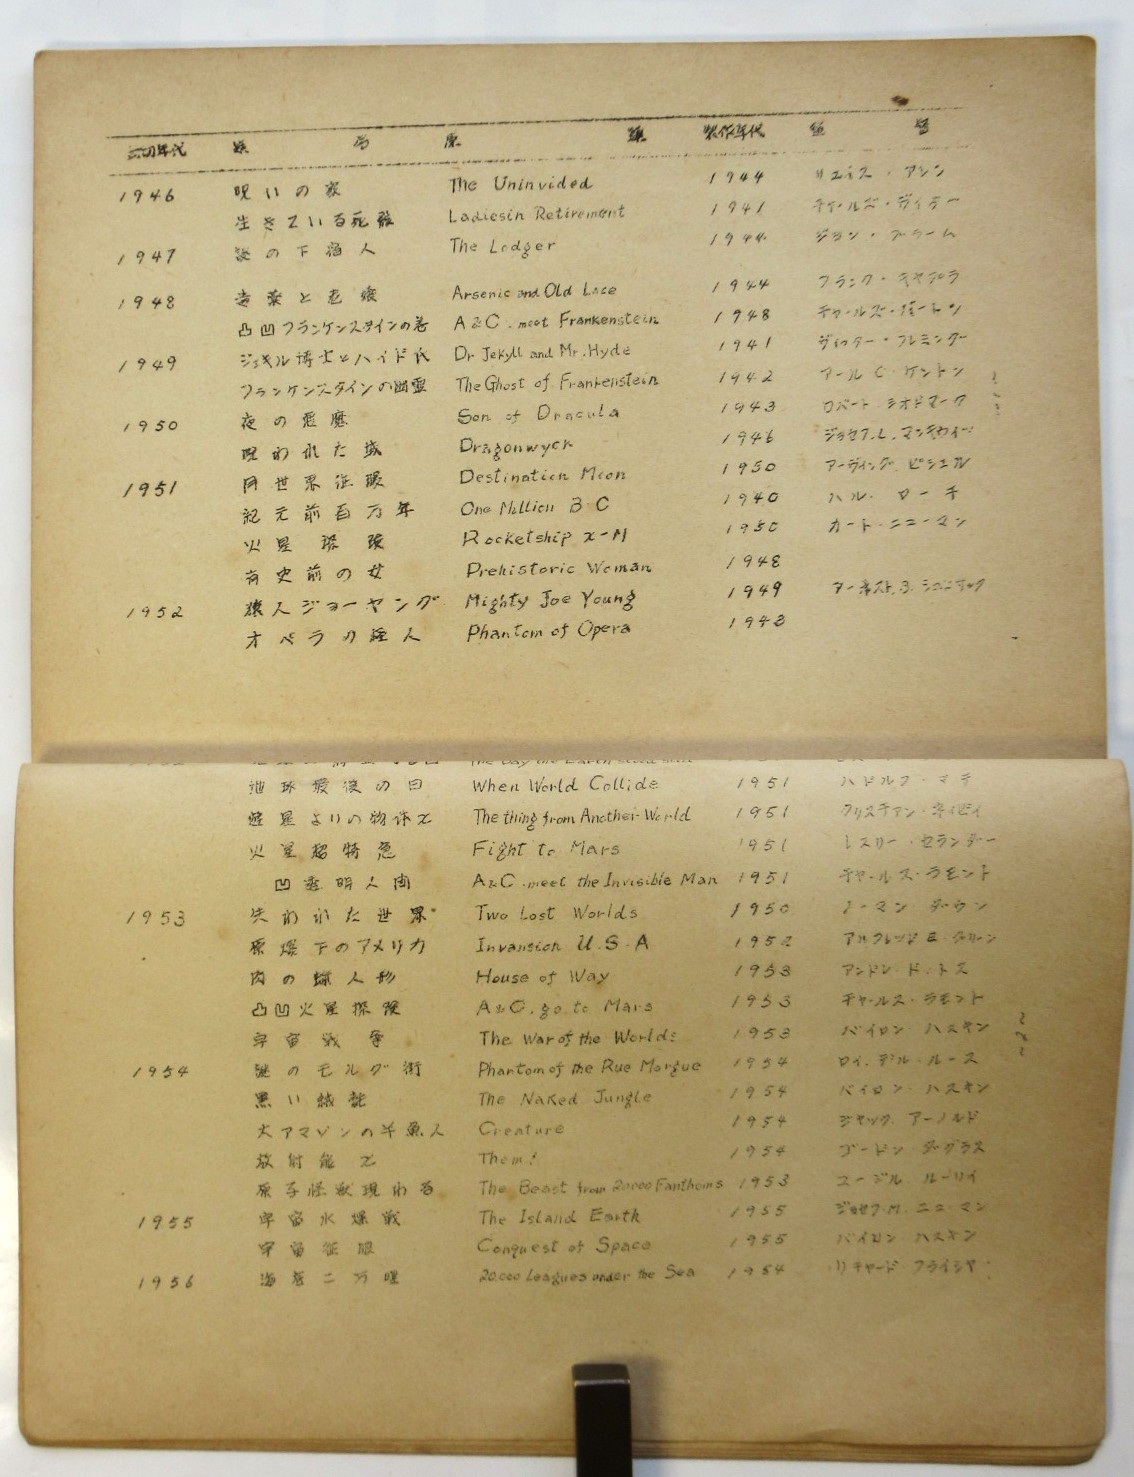 公開年代 題名 原題 製作年代 監督
1946 呪いの家 The Uninvided 1944 リュイス・アレン
生きている死骸 Ladiesin Retirement 1941 チャールズ・ヴィダー
1947 謎の下宿人 The Lodger 1944 ジョン・ブラーム
1948 毒薬と老嬢 Arsenic and Old Lace 1944 フランク・キャプラ
凸凹フランケンスタインの巻 A&C. meet Frankenstein 1948 チャールズ・バートン
1949 ジェキル博士とハイド氏 Dr Jekyll and Mr. Hyde 1941 ヴィクター・フレミング
フランケンスタインの幽霊 The Ghost of Frankenstein 1942 アール C・ケントン
1950 夜の悪魔 Son of Dracula 1943 ロバート・シオドマーク
呪われた城 Dragonwyck 1946 ジョセフ.L.マンキウイッツ
1951 月世界征服 Destination Moon 1950 アーヴィング ピシェル
紀元前百万年 One Million B・C 1940 ハル・ローチ
火星探険 Rocketship X-M 1950 カート・ニューマン
有史前の女 Prehistoric Woman 1948
1952 猿人ジョーヤング Mighty Joe Young 1949 アーネスト.B.シュ
オペラの怪人 Phantom of Opera 1943
The Day the Earth stood still 1951
地球最後の日 When World Collide 1951 ドルフ・マテ
遊星よりの物体X The thing from Another World 1951 クリスチァン・ネイビイ
火星超特急 Fight to Mars 1951 レスリー・セランダー
凹透明人間 A&C. meet the Invisible Man 1951 チャールス・ラモント
1953 失われた世界 Two Lost Worlds 1950 ノーマン ダウン
原爆下のアメリカ Invansion U.S.A 1952 アルフレッド E・グリーン
肉の蝋人形 House of Way 1953 アンドレ・ド・トス
凸凹火星探険 A&C. go to Mars 1953 チャールス・ラモント
宇宙戦争 The War of the Worlds 1953 バイロン ハスキン
1954 謎のモルグ街 Phantom of the Rue Morgue 1954 ロイ・デル・ルース
黒い絨毯 The Naked Jungle 1954 バイロン・ハスキン
大アマゾンの半魚人 Creature 1954 ジャック アーノルド
放射能X Them! 1954 ゴードン ダグラス
原子怪獣現わる The Beast from 20000 Fanthoms 1953 ユージル ルーリイ
1955 宇宙水爆戦 The Island Earth 1955 ジョセフ・M・ニューマン
宇宙征服 Conquest of Space 1955 バイロン ハスキン
1956 海底二万哩 20.000 Leagues under the Sea 1954 リチャード・フライシャ
~2~